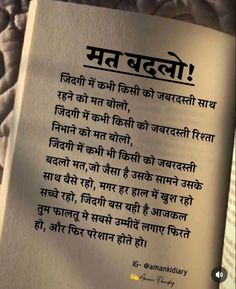 मत बदलो!
जिंदगी में कभी किसी को जबरदस्ती साथ
रहने को मत बोलो,
जिंदगी में कभी किसी को जबरदस्ती रिश्ता
निभाने को मत बोलो,
जिंदगी में कभी भी किसी को जबरदस्ती
बदलो मत,जो जैसा है उसके सामने उसके
साथ वैसे रहो, मगर हर हाल में खुश रहो
सच्चे रहो, जिंदगी बस यही है आजकल
तुम फालतू मे सबसे उम्मीदें लगाए फिरते
हो, और फिर परेशान होते हो।
IG- @amankidiary
Aman Pandey